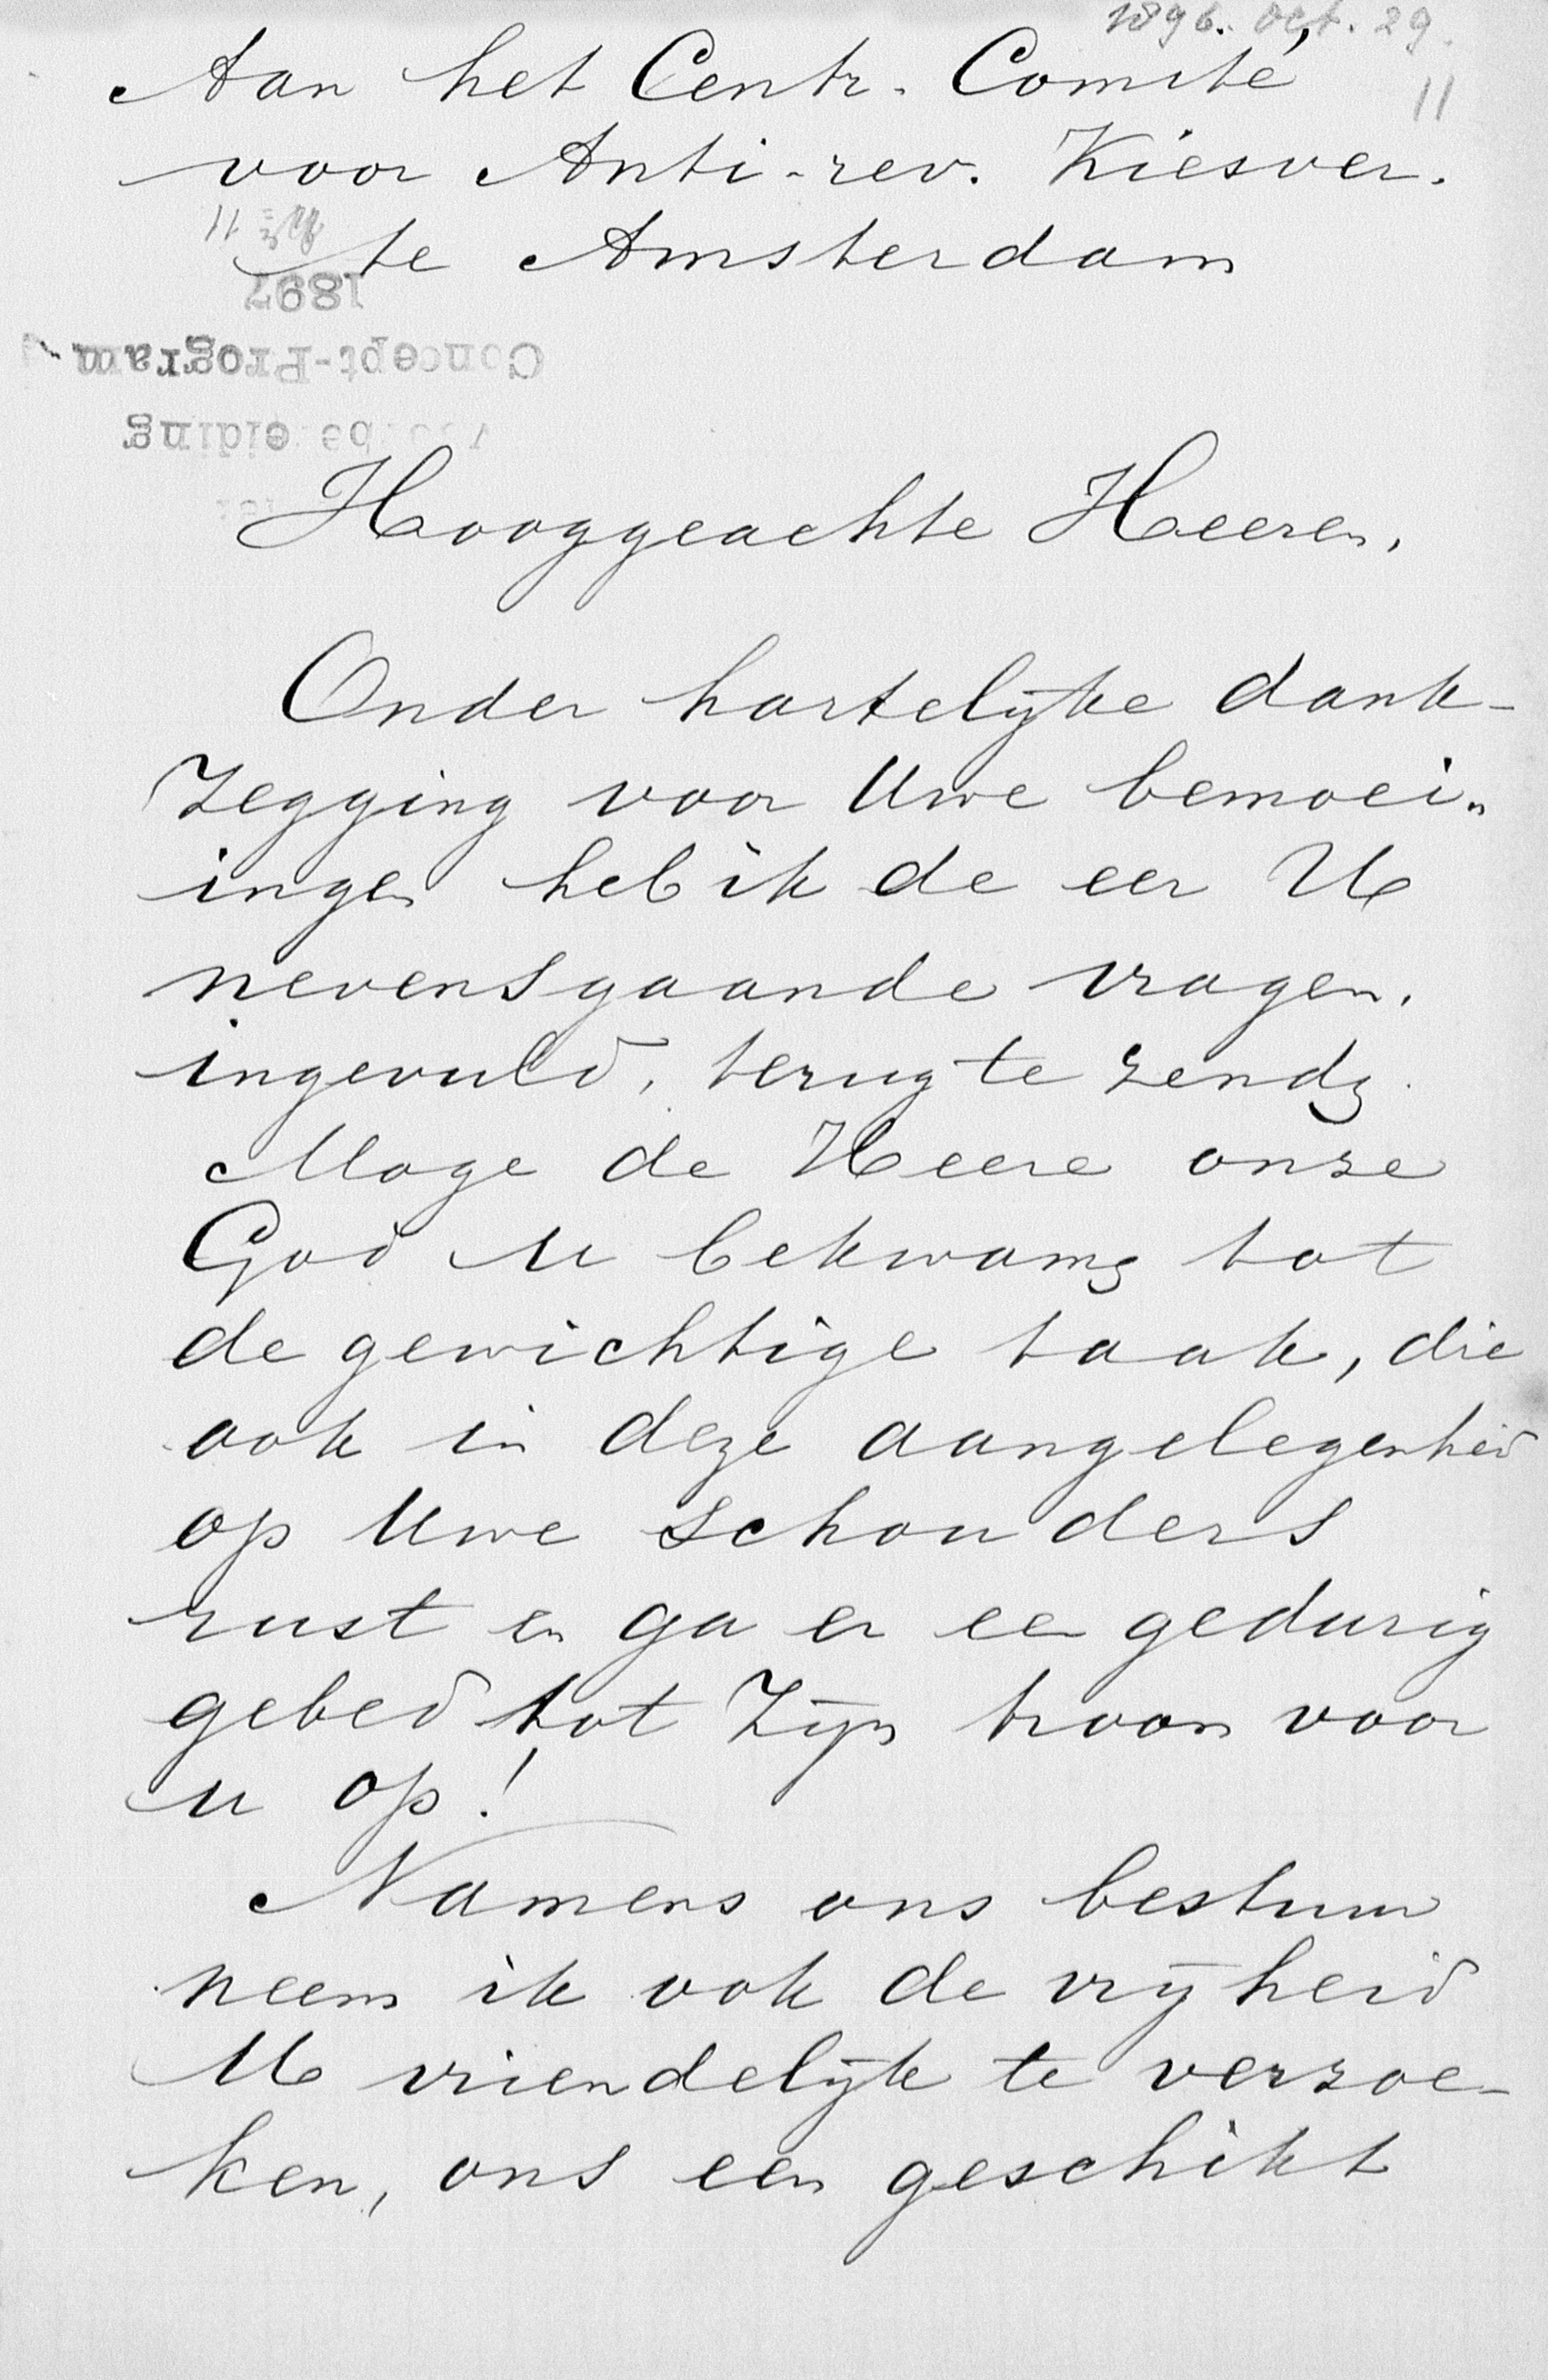 1896. Oct. 29.
Aan het Centr. Comité
11
voor Anti-rev. Kiesver.
te Amsterdam
11
1897
Concept-Program
Hooggeachte Heeren,
Onder hartelijke dank-
zegging voor Uwe bemoei-
ingen heb ik de eer U
nevensgaande vragen,
ingevuld, terug te zenden.
Moge de Heere onze
God U bekwamen tot
de gewichtige taak, die
ook in deze aangelegenheid
op Uwe schouders
rust en ga er een gedurig
gebed tot Zijn troon voor
u op!
Namens ons bestuur
neem ik ook de vrijheid
U vriendelijk te verzoe-
ken, ons een geschikt